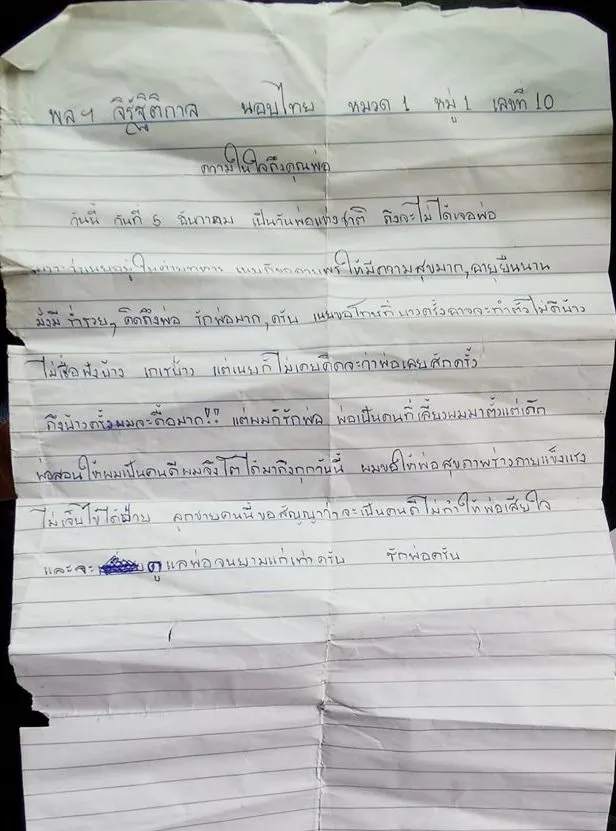 พลฯ จิรัฐิติกาล นอบไทย หมวด 1 หมู่ 1 เลขที่ 10
ความในใจถึงคุณพ่อ
วันนี้ วันที่ 5 ธันวาคม เป็นวันพ่อแห่งชาติ ถึงจะไม่ได้เจอพ่อ
ให้มีความสุขมาก, อายุยืนนาน
มั่งมี ร่ำรวย, คิดถึงพ่อ รักพ่อมาก, ครับ เนยขอโทษที่บางครั้งอาจจะทำตัวไม่ดีบ้าง
ไม่เชื่อฟังบ้าง เกเรบ้าง แต่เนยก็ไม่เคยคิดจะว่าพ่อเลยสักครั้ง
ถึงบ้างครั้งผมจะดื้อมาก!! แต่ผมก็รักพ่อ พ่อเป็นคนที่เลี้ยงผมมาตั้งแต่เด็ก
พ่อสอนให้ผมเป็นคนดีผมจึงโตได้มาถึงทุกวันนี้ ผมขอให้พ่อสุขภาพร่างกายแข็งแรง
ไม่เจ็บไข้ได้ป่วย ลูกชายคนนี้ขอสัญญาว่าจะเป็นคนดีไม่ทำให้พ่อเสียใจ
และจะ ดูแลพ่อจนยามแก่เฒ่าครับ รักพ่อครับ